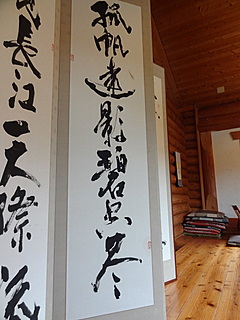 孤帆遠影碧空盡
見長江天際流